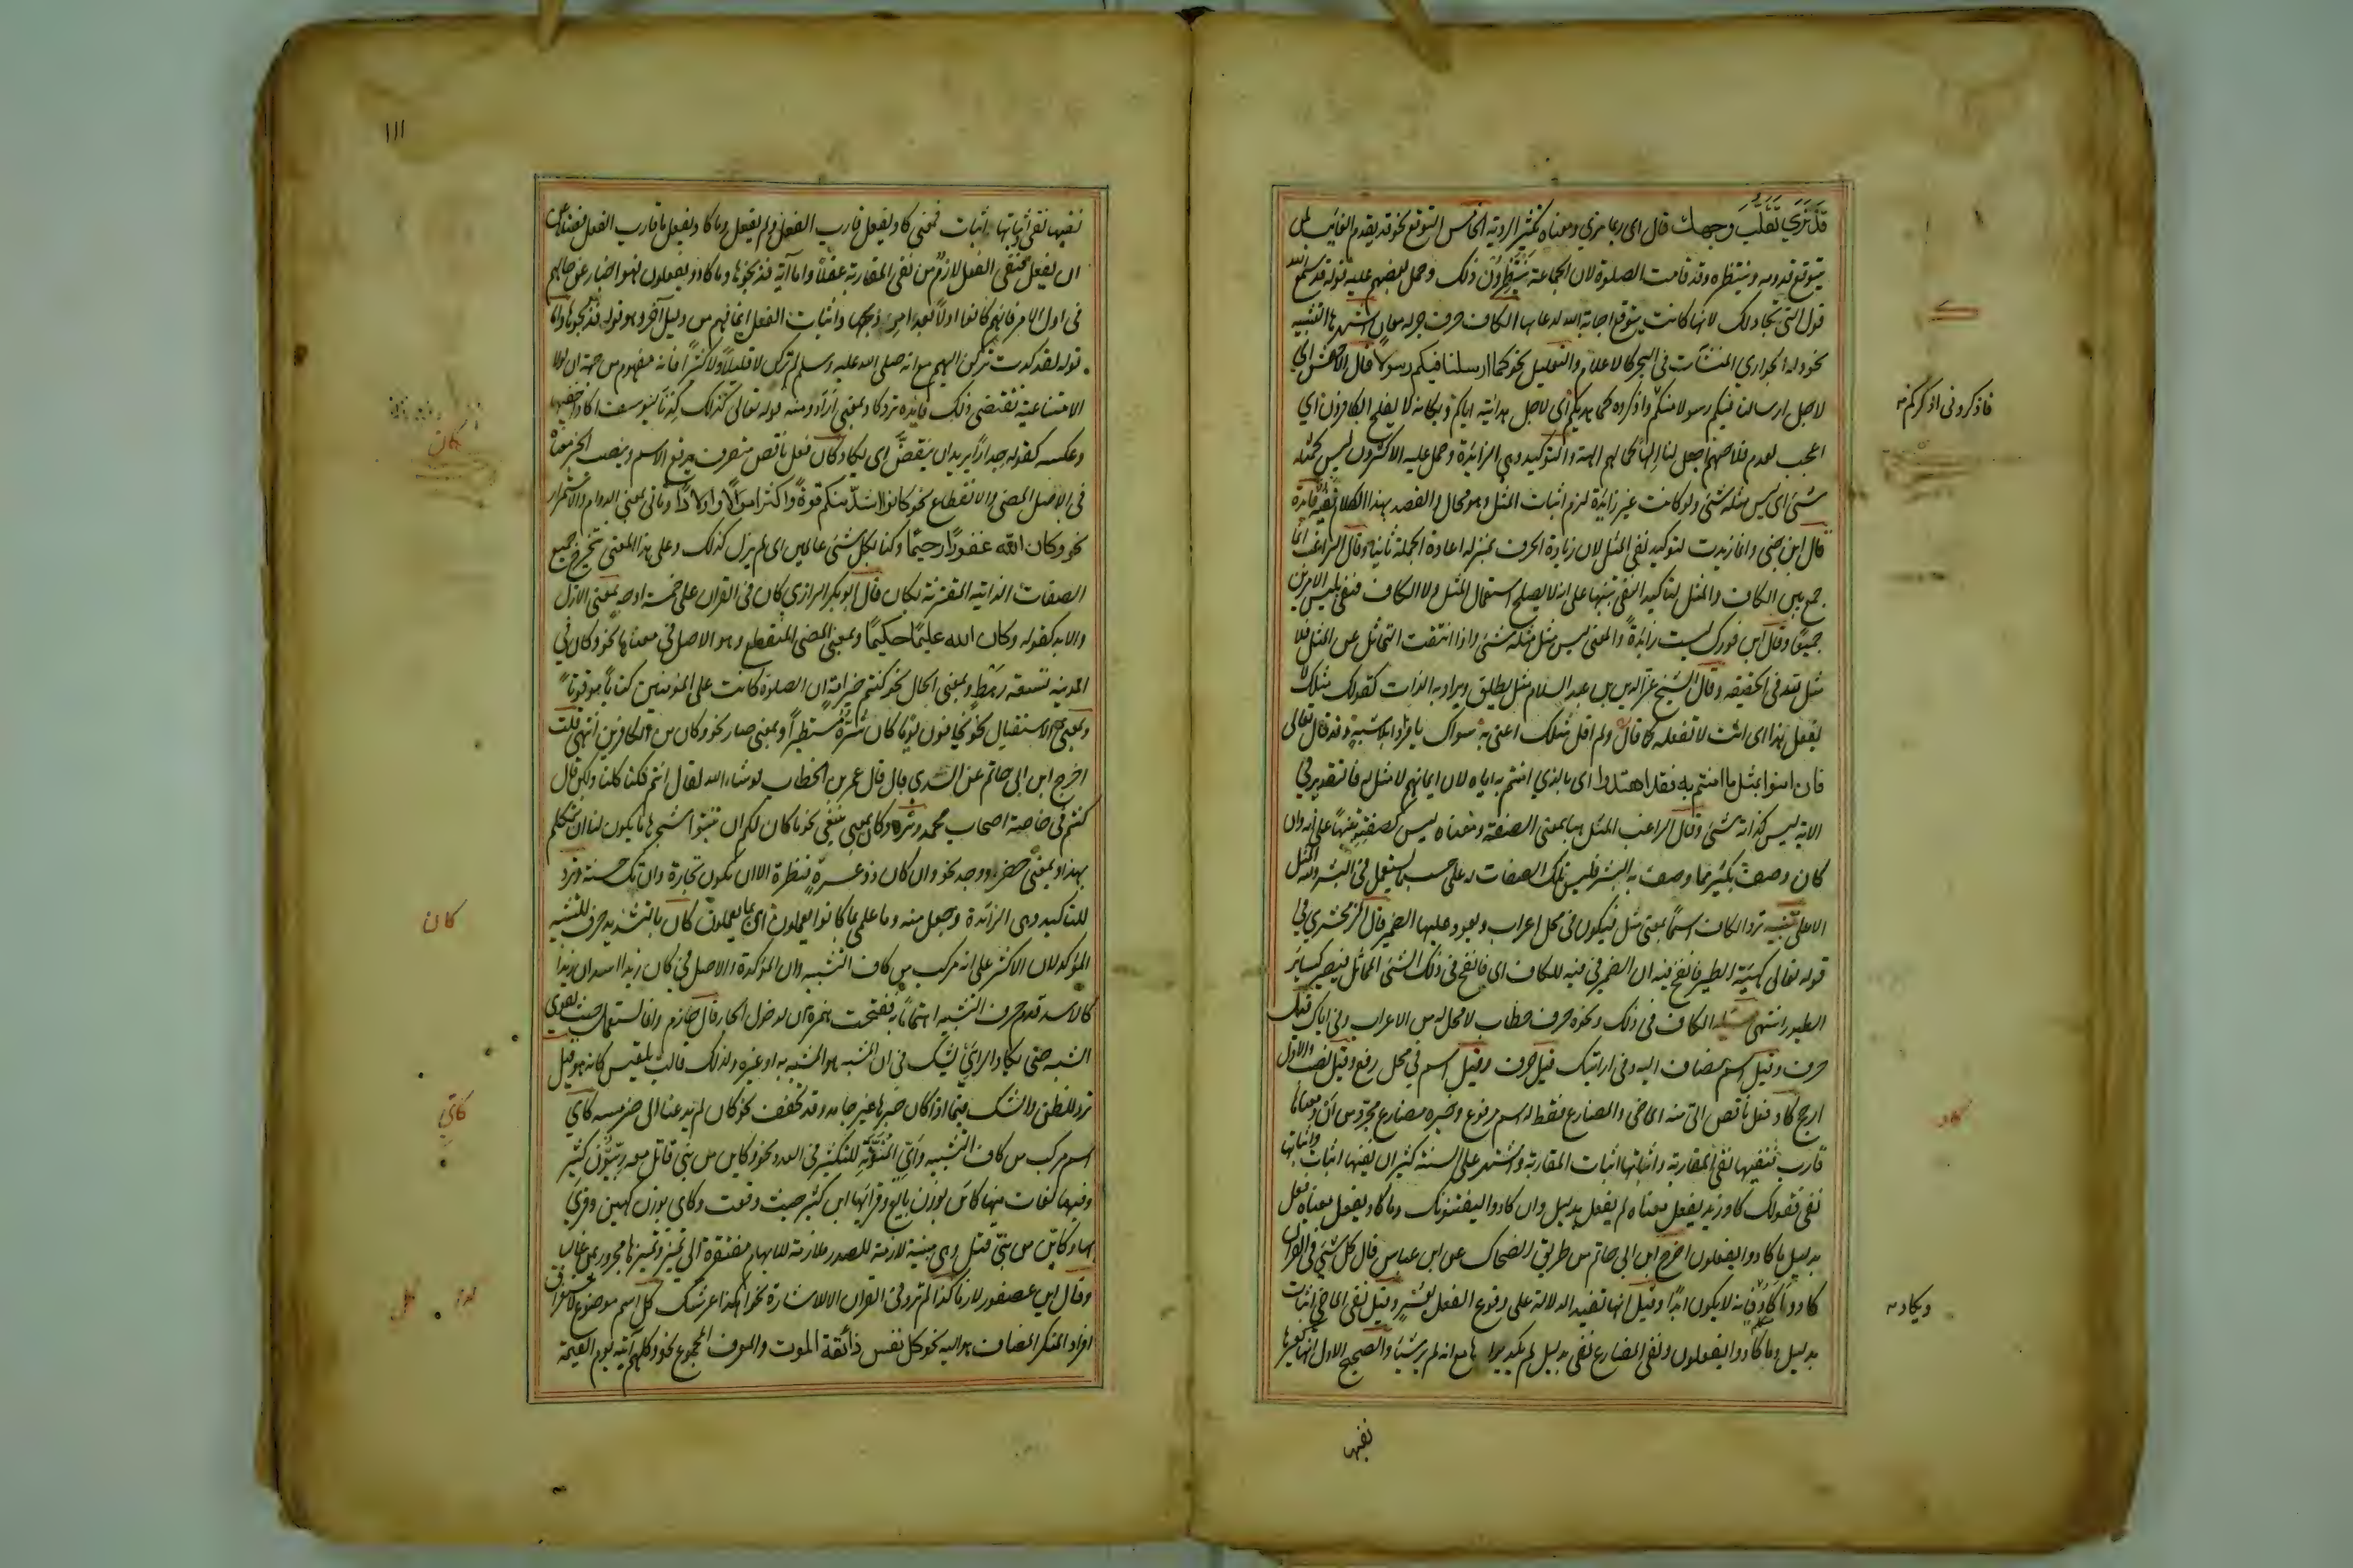 قد نرى تقلب وجهك قال اى ربما نرى ومعناه تكثير الروية الخامس التوقع نحو قد يقدم الغائب لمن
يتوقع قدومه وينتظره وقد قامت الصلوة لان الجماعة ينتظرون ذلك وحمل بعضهم عليه قوله قد سمع الله
قول التى تجادلك لانها كانت يتوقع اجابة الله لدعائها الكاف حرف جر له معان اشهرها التشبيه
نحو وله الجوارى المنشآت فى البحر كالاعلام والتعليل نحو كما ارسلنا فيكم رسولا قال الاخفش اى
لاجل ارسالنا فيكم رسولا منكم واذكروه كما هديكم اى لاجل هدايته اياكم ويكانه لا يفلح الكافرون اى
اعجب لعدم فلاحهم اجعل لنا الها كما لهم الهة والتوكيد وهى الزائدة وحمل عليه الاكثرون ليس كمثله
شئ اى ليس مثله شئ ولو كانت غير زائدة لزم اثبات المثل وهو محال والقصد بهذا الكلام نفيه
قال ابن جنى وانما زيدت لتوكيد نفى المثل لان زيادة الحرف بمنزلة اعادة الجملة ثانيا وقال الراغب انما
جمع بين الكاف والمثل لتاكيد النفى تنبيها على انه لا يصلح استعمال المثل ولا الكاف فنفى بليس الامرين
جميعا وقال ابن فورك ليست زائدة والمعنى ليس مثل مثله شئ واذا انتفت التماثل عن المثل فلا
مثل لله فى الحقيقه وقال الشيخ عز الدين بن عبد السلام مثل يطلق ويراد به الذات كقولك مثلك لا
يفعل هذا اى انت لا تفعله كما قال ولم اقل مثلك اعنى به سواك يا فردا بلا مشبه وقد قال تعالى
فان امنوا بمثل ما امنتم به فقد اهتدوا اى بالذى امنتم به اياه لان ايمانهم لا مثل له فالتقدير فى
الاية ليس كذاته شئ وقال الراغب المثل هنا بمعنى الصفة ومعناه ليس كصفته تنبيها على انه وان
كان وصف بكثير مما وصف به البشر فليس تلك الصفات له على حسب ما يستعمل فى البشر ولله المثل
الاعلى تنبيه ترد الكاف اسما بمعنى مثل فيكون فى محل اعراب ويعود عليها الضمير قال الزمخشرى فى
قوله تعالى كهيئة الطير فانفخ فيه ان الضمير فى فيه للكاف اى فانفخ فى ذلك الشئ المماثل فيصير كسائر
الطيور انتهى الكاف فى ذلك ونحوه حرف خطاب لا محل له من الاعراب وفى اياك قيل
حرف وقيل اسم مضاف اليه وفى ارايتك قيل حرف وقيل اسم فى محل رفع وقيل نصب والاول
ارجح كاد فعل ناقص اتى منه الماضى والمضارع فقط له اسم مرفوع وخبره مضارع مجرد من ان ومعناها
قارب فنفيها نفى المقاربة واثباتها اثبات المقاربة واشتهر على السنة كثير ان نفيها اثبات واثباتها
نفى فقولك كاد زيد يفعل معناه لم يفعل بدليل وان كادوا ليفتنونك وما كاد يفعل معناه فعل
بدليل ما كادوا يفعلون اخرج ابن ابى حاتم من طريق الضحاك عن ابن عباس قال كل شئ فى القران
كادوا وكاد فانه لا يكون ابدا وقيل انها تفيد الدلالة على وقوع الفعل بعسر وقيل نفى الماضى اثبات
بدليل وما كادوا يفعلون ونفى المضارع نفى بدليل لم يكد يراها مع انه لم ير شيئا والصحيح الاول انها كغيرها
نفيها
فاذكرونى اذكركم
ك
كاد
ويكاد
١١١
نفيها نفى اثباتها اثبات فمعنى كاد يفعل قارب الفعل ولم يفعل وما كاد يفعل ما قارب الفعل فضلا عن
ان يفعل فنفى الفعل لازم من نفى المقاربة عقلا واما آية فذبحوها وما كادوا يفعلون فهو اخبار عن حالهم
فى اول الامر فانهم كانوا اولا بعداء من ذبحها واثبات الفعل انما فهم من دليل آخر وهو قوله فذبحوها واما
قوله لقد كدت تركن اليهم مع انه صلى الله عليه وسلم لم يركن لا قليلا ولا كثيرا فانه مفهوم من جهة ان لولا
الامتناعية تقتضى ذلك فائده ترد كاد بمعنى اراد ومنه قوله تعالى كذلك كدنا ليوسف اكاد اخفيها
وعكسه كقوله جدارا يريد ان ينقض اى يكاد كان فعل ناقص متصرف يرفع الاسم وينصب الخبر معناه
فى الاصل المضى والانقطاع نحو كانوا اشد منكم قوة واكثر اموالا واولادا وتاتى بمعنى الدوام والاستمرار
نحو وكان الله غفورا رحيما وكنا بكل شئ عالمين اى لم يزل كذلك وعلى هذا المعنى تتخرج جميع
الصفات الذاتية المقترنة بكان قال ابو بكر الرازى كان فى القران على خمسة اوجه بمعنى الازل
والابد كقوله وكان الله عليما حكيما وبمعنى المضى المنقطع وهو الاصل فى معناها نحو وكان فى
المدينه تسعة رهط وبمعنى الحال نحو كنتم خير امة ان الصلوة كانت على المؤمنين كتابا موقوتا
وبمعنى الاستقبال نحو يخافون يوما كان شره مستطيرا وبمعنى صار نحو وكان من الكافرين انتهى قلت
اخرج ابن ابى حاتم عن السدى قال قال عمر بن الخطاب لو شاء الله لقال انتم فكنا كلنا ولكن قال
كنتم فى خاصة اصحاب محمد وترد كان بمعنى ينبغى نحو ما كان لكم ان تنبتوا شجرها ما يكون لنا ان نتكلم
بهذا وبمعنى حضر او وجد نحو وان كان ذو عسرة فنظرة الا ان تكون تجارة وان تك حسنة وترد
للتاكيد وهى الزائدة وجعل منه وما علمى بما كانوا يعملون اى بما يعملون كأن بالتشديد حرف للتشبيه
المؤكد لان الاكثر على انه مركب من كاف التشبيه وان المؤكدة والاصل فى كأن زيدا اسد ان زيدا
كالاسد قدم حرف التشبيه اهتماما به ففتحت همزة ان لدخول الجار قال حازم وانما تستعمل حيث يقوى
الشبه حتى يكاد الرائى يشك فى ان المشبه هو المشبه به او غيره ولذلك قالت بلقيس كانه هو قيل
ترد للظن والشك فيما اذا كان خبرها غير جامد وقد تخفف نحو كان لم يدعنا الى ضر مسه كأى
اسم مركب من كاف التشبيه واى المنونة للتكثير فى العدد نحو وكاين من نبى قاتل معه ربيون كثير
وفيها لغات منها كائن بوزن بائع وقرأ بها ابن كثير حيث وقعت وكأى بوزن كعين وقرئ
بها وكاين من نبى قتل وهى مبنية لازمة للصدر ملازمة للابهام مفتقرة الى تمييز وتمييزها مجرور بمن غالبا
وقال ابن عصفور لازما كذا لم ترد فى القران الا للاشارة نحو اهكذا عرشك كل اسم موضوع لاستغراق
افراد المنكر المضاف هو اليه نحو كل نفس ذائقة الموت والمعرف المجموع نحو وكلهم آتيه يوم القيمة
كان
كان
كاي
كذا
كل